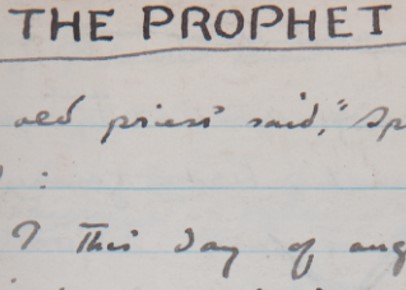 THE PROPHET
old priest said, " Sp
:
? This day of aug